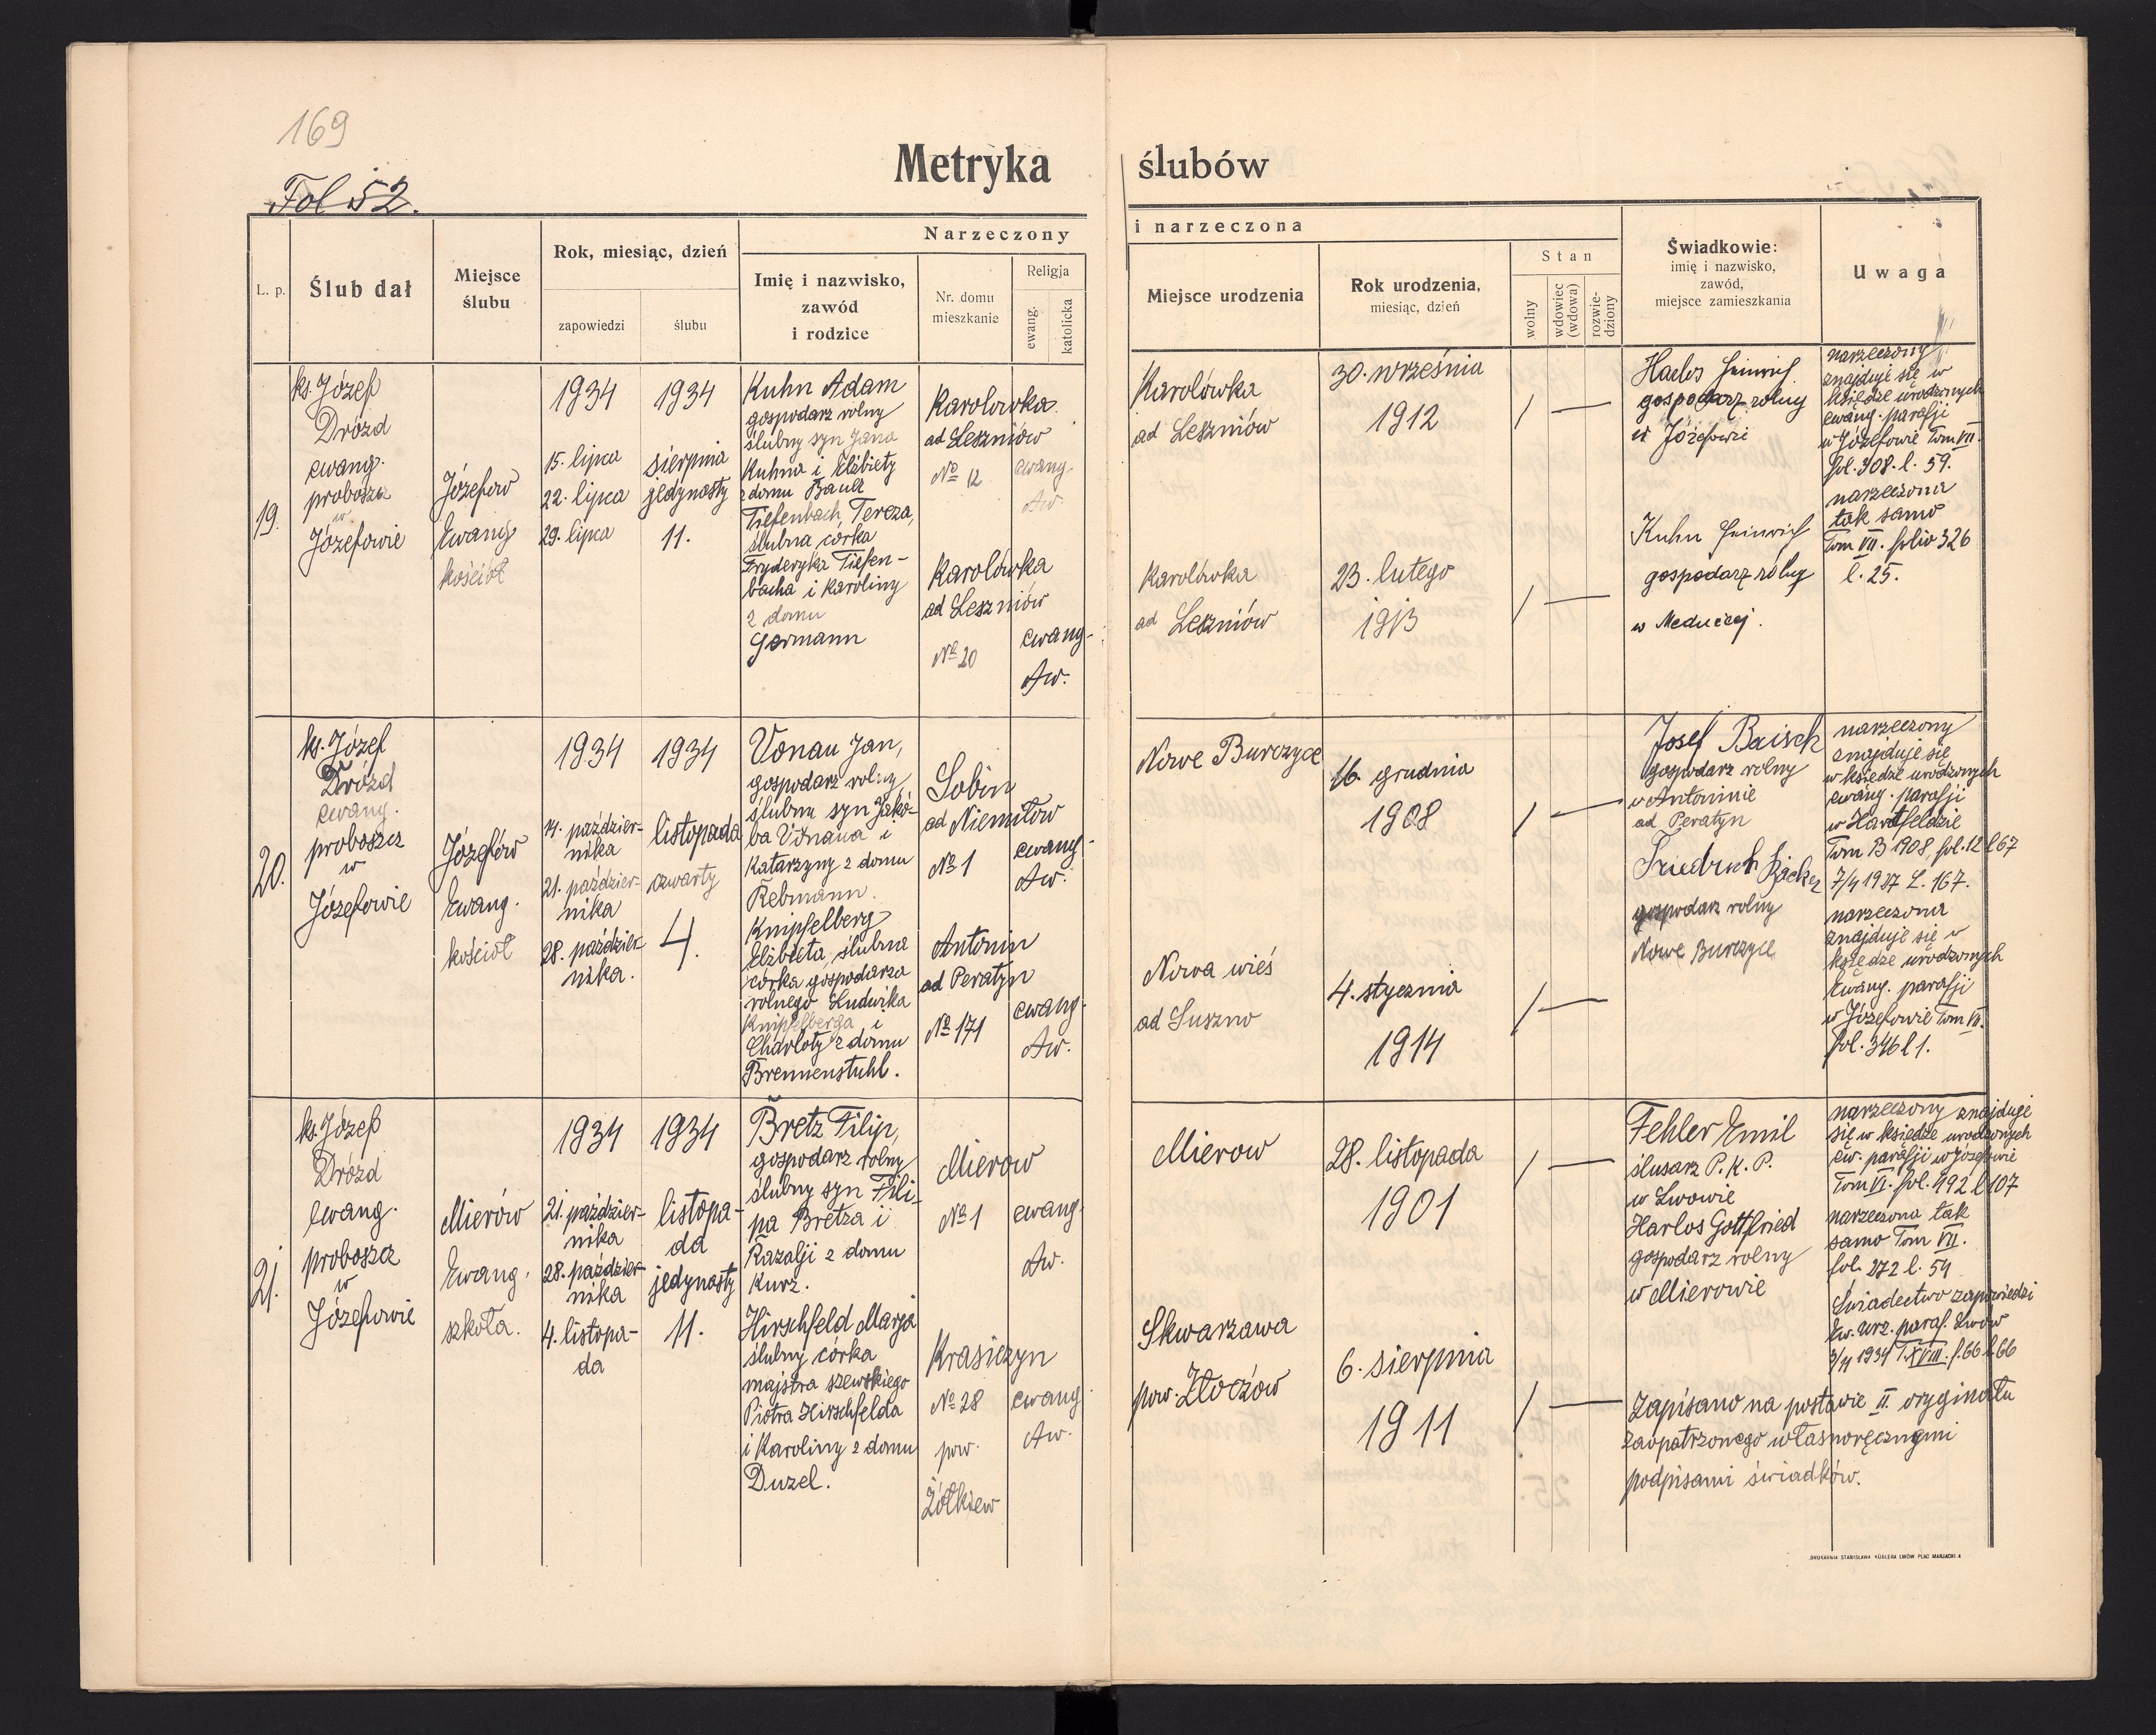 169
Metryka ślubów
Fol 52.
Narzeczony i narzeczona
L. p.
Ślub dał
Miejsce
ślubu
Rok, miesiąc, dzień
zapowiedzi
ślubu
Imię i nazwisko,
zawód
i rodzice
Nr. domu
mieszkanie
Religja
ewang.
katolicka
Miejsce urodzenia
Rok urodzenia,
miesiąc, dzień
Stan
wolny
wdowiec
(wdowa)
rozwie-
dziony
Świadkowie:
imię i nazwisko,
zawód,
miejsce zamieszkania
Uwaga
19.
ks. Józef
Drózd
ewang.
proboszcz
w
Józefowie
Józefow
Ewang
kościoł
1934
15. lipca
22. lipca
29. lipca
1934
sierpnia
jedynasty
11.
Kuhn Adam
gospodarz rolny
ślubny syn Jana
Kuhna i Elżbiety
z domu Bauer
Tiefenbach Tereza,
ślubna córka
Fryderyka Tiefen-
bacha i Karoliny
z domu
Germann
Karolowka
ad Leszniów
No 12
ewang.
Aw.
Karolówka
ad Leszniów
No 20
ewang.
Aw.
Karolówka
ad Leszniów
30. września
1912
Karolówka
ad Leszniów
23. lutego
1913
Harlos Heinrich
gospodarz rolny
w Józefowie
Kuhn Heinrich
gospodarz rolny
w
narzeczony
znajduje się w
księdze urodzonych
ewang. parafji
w Józefowie Tom VII.
fol. 308. l. 59.
narzeczona
tak samo
Tom VII. folio 326
l. 25.
20.
ks. Józef
Drózd
ewang.
proboszcz
w
Józefowie
Józefów
Ewang.
kościoł
1934
14. paździer-
nika
21. paździer-
nika
28. paździer-
nika.
1934
listopada
czwarty
4.
Vonau Jan,
gospodarz rolny,
ślubny syn Jakó-
ba Vonaua i
Katarzyny z domu
Rebmann.
Knipfelberg
Elżbieta, ślubna
córka gospodarza
rolnego Ludwika
Knipfelberga i
Charloty z domu
Brennenstuhl.
Sobin
ad Niemiłow
No 1
ewang.
Aw.
Antonin
ad Peratyn
No 171
ewang.
Aw.
Nowe Burczyce
16. grudnia
1908
Nowa wieś
ad Suszno
4. stycznia
1914
Josef Baisch
gospodarz rolny
w Antoninie
ad Peratyn
Friedrich
gospodarz rolny
Nowe Burczyce
narzeczony
znajduje się
w księdze urodzonych
ewang. parafji
w Hartfeldzie
Tom B 1908, fol. 12 l 67
7/4 1937 L. 167.
narzeczona
znajduje się w
księdze urodzonych
Ewang. parafji
w Józefowie Tom VII.
fol. 346 l 1.
21.
ks. Józef
Drózd
ewang.
proboszcz
w
Józefowie
Mierów
Ewang.
szkoła.
1934
21. paździer-
nika
28. paździer-
nika
4. listopa-
da
1934
listopa-
da
jedynasty
11.
Bretz Filip,
gospodarz rolny
ślubny syn Fili-
pa Bretza i
Razalji z domu
Kurz.
Hirschfeld Marja
ślubny córka
majstra szewskiego
Piotra Hirschfelda
i Karoliny z domu
Duzel.
Mierow
No 1
ewang.
Aw.
Krasiczyn
No 28
pow.
Żółkiew
ewang
Aw.
Mierow
28. listopada
1901
Skwarzawa
pow. Złoczów
6. sierpnia
1911
Fehler Emil
ślusarz P. K. P.
w Lwowie
Harlos Gottfried
gospodarz rolny
w Mierowie
narzeczony znajduje
się w księdze urodzonych
ew. parafji w Józefowie
Tom VI. fol. 492 l 107
narzeczona tak
samo Tom VII.
fol. 272 l. 54
Świadectwo zapowiedzi
Ew. urz. paraf. Lwów
1934 T. XVIII. f. 66 l. 66
Zapisano na postawie II oryginału
zaopatrzonego własnoręcznymi
podpisami świadków.
DRUKARNIA STANISŁAWA KÜBLERA LWÓW PLAC MARJACKI 4